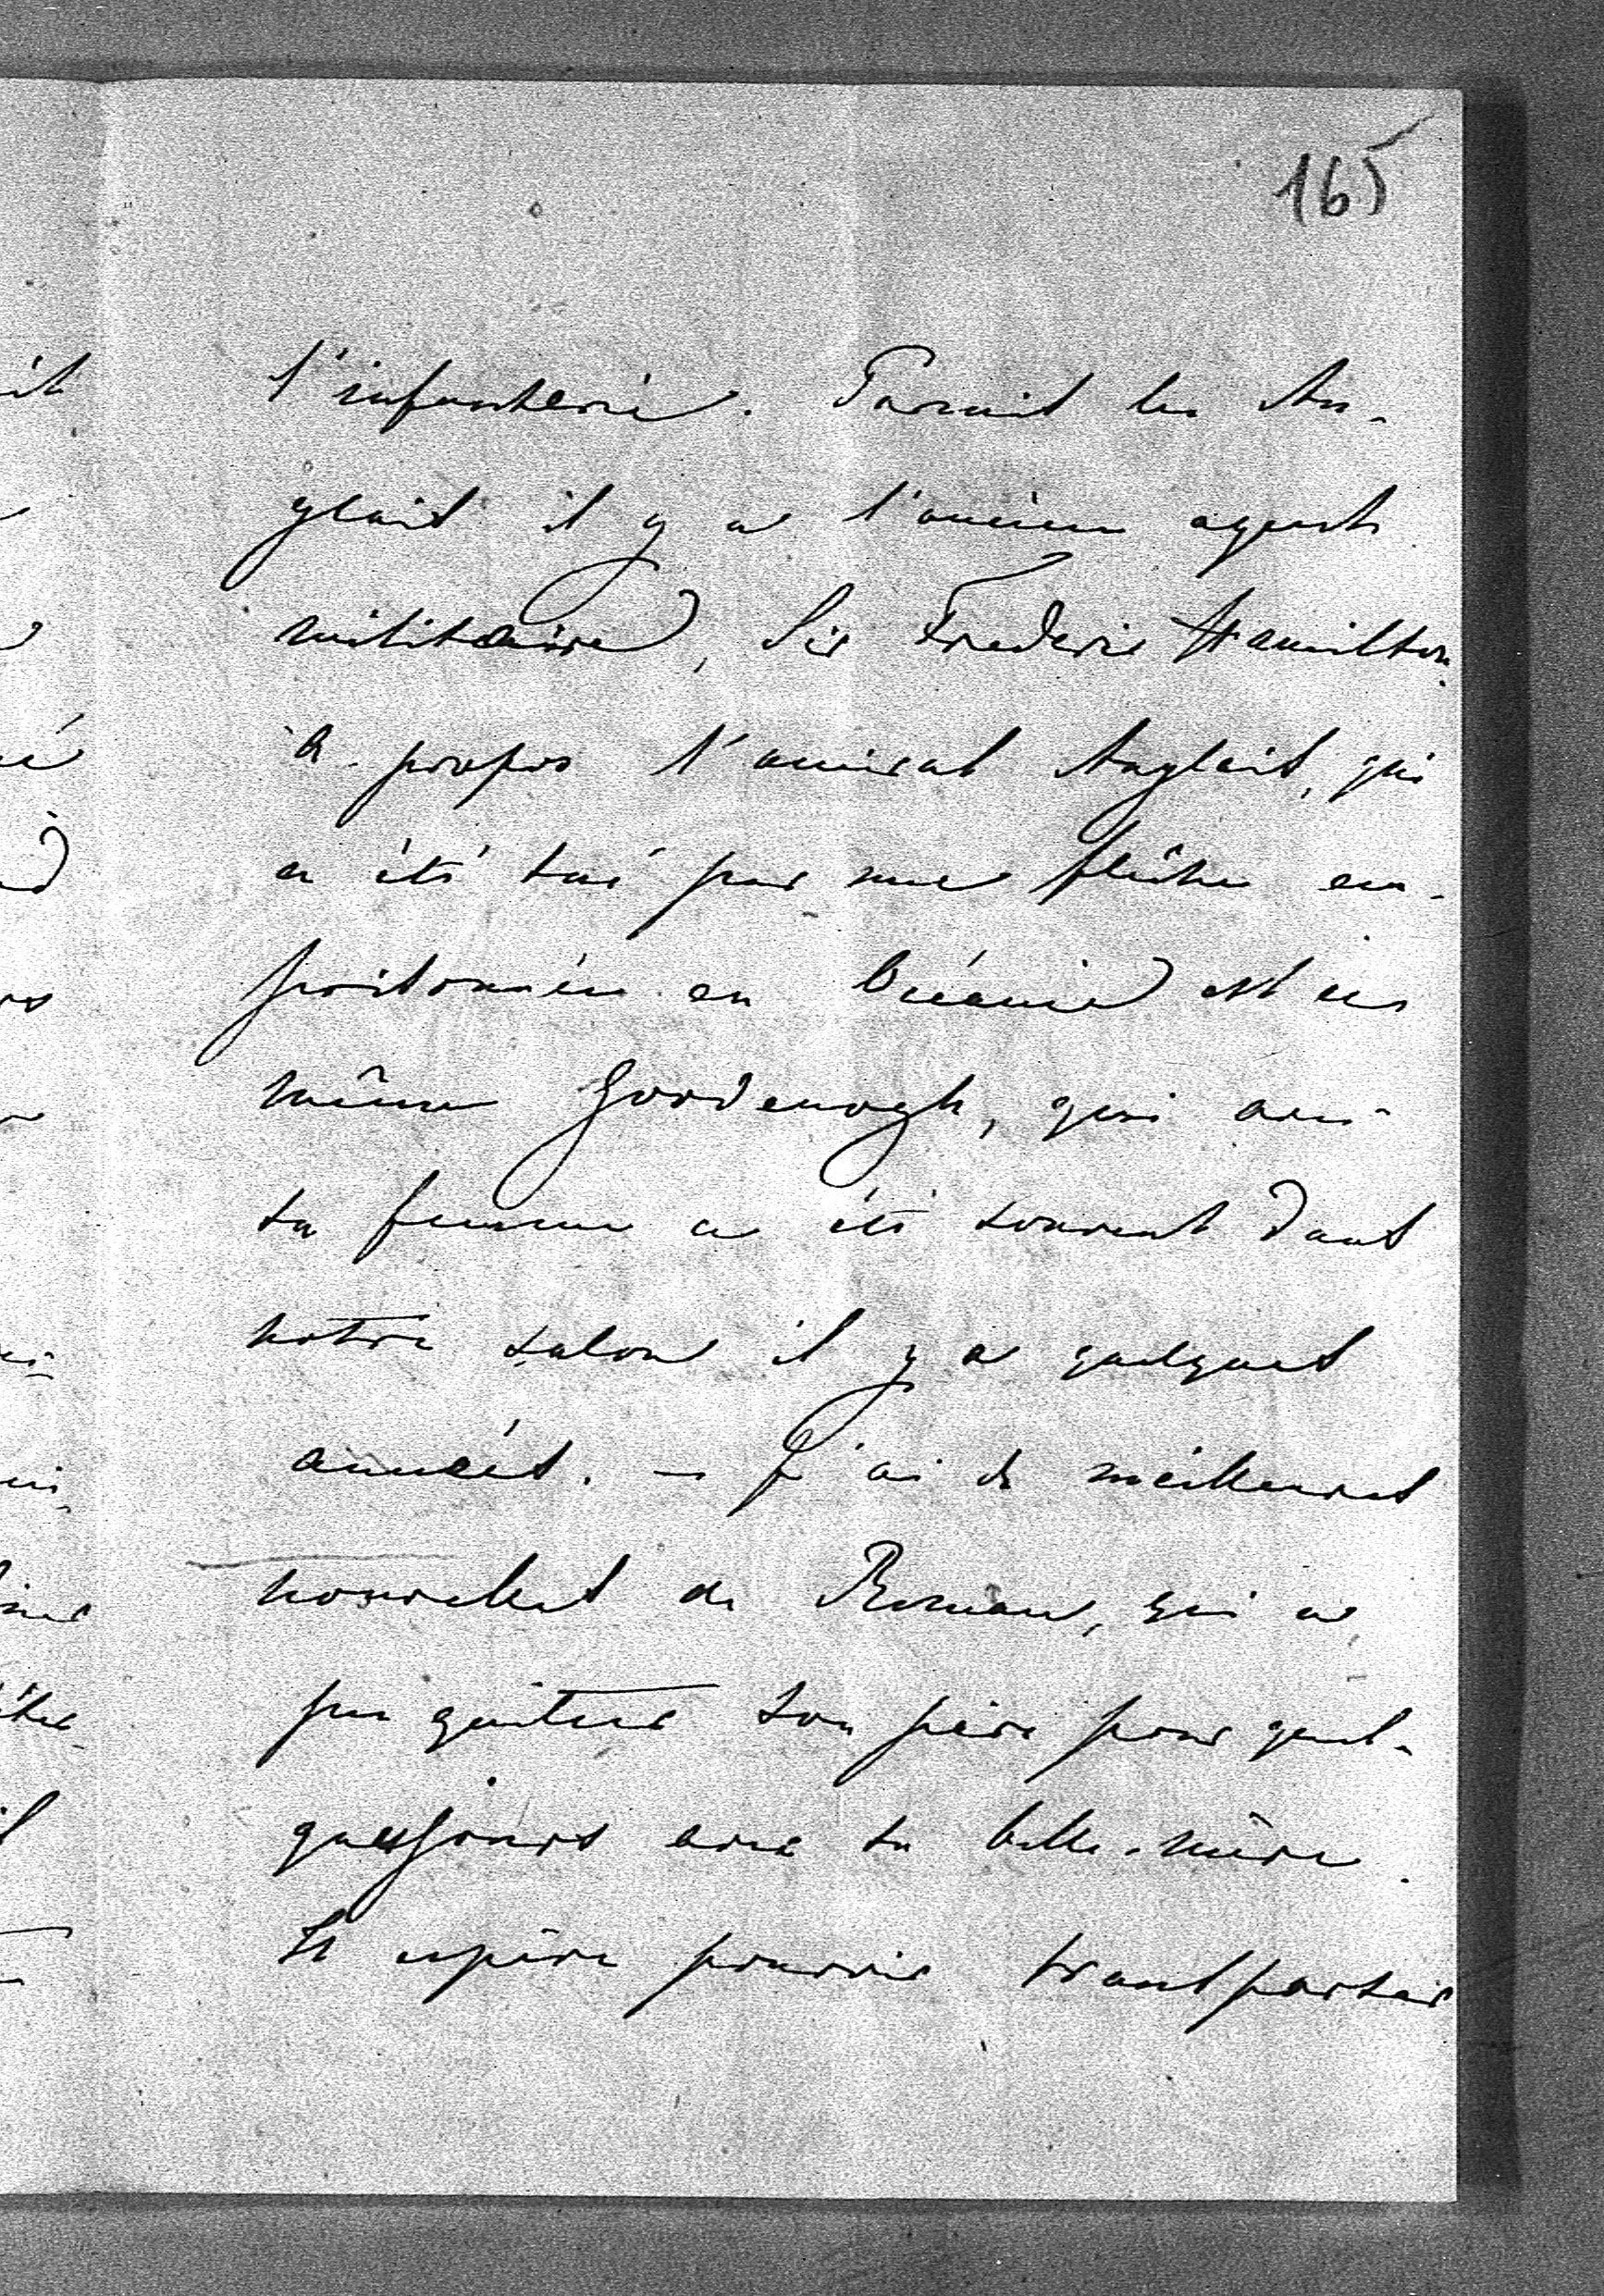 165
l'infanterie. Parmis les An-
glais il y a l'ancien agent
militaire, Sir Frederic Hamilton.
à propos l'amiral Anglais, qui
a été tué par une flêche em-
poisonnée en Océanie est ce
même Goodenogh, qui avec
sa femme a été souvent dans
notre salon il y a quelques
années. — J'ai de meilleures
nouvelles de Roman, qui a
pu quitter son père pour quel-
ques jours avec sa belle-mère.
Il espère pouvoir transporter